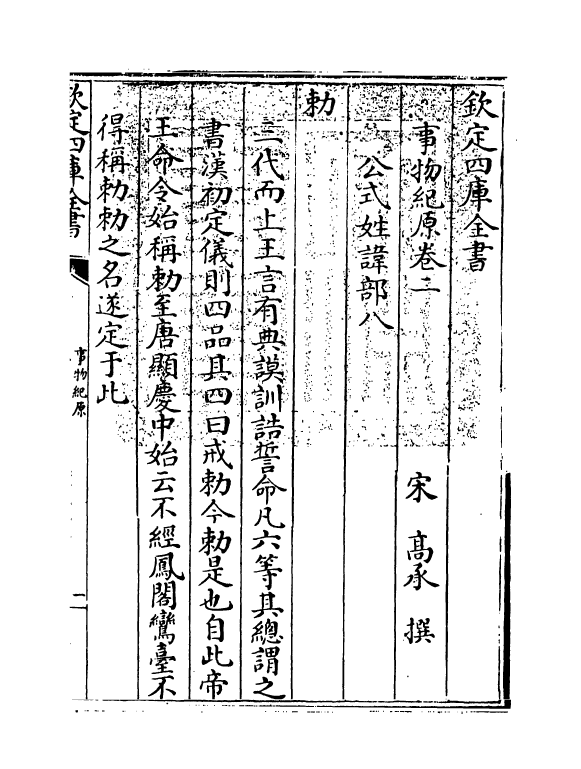 欽定四庫全書
事物紀原卷二
宋 高承 撰
公式姓諱部八
勅
三代而上王言有典謨訓誥誓命凡六等其總謂之
書漢初定儀則四品其四曰戒勅今勅是也自此帝
王命令始稱勅至唐顯慶中始云不經鳳閣鸞臺不
得稱勅勅之名遂定于此
欽定四庫全書
事物紀原
二